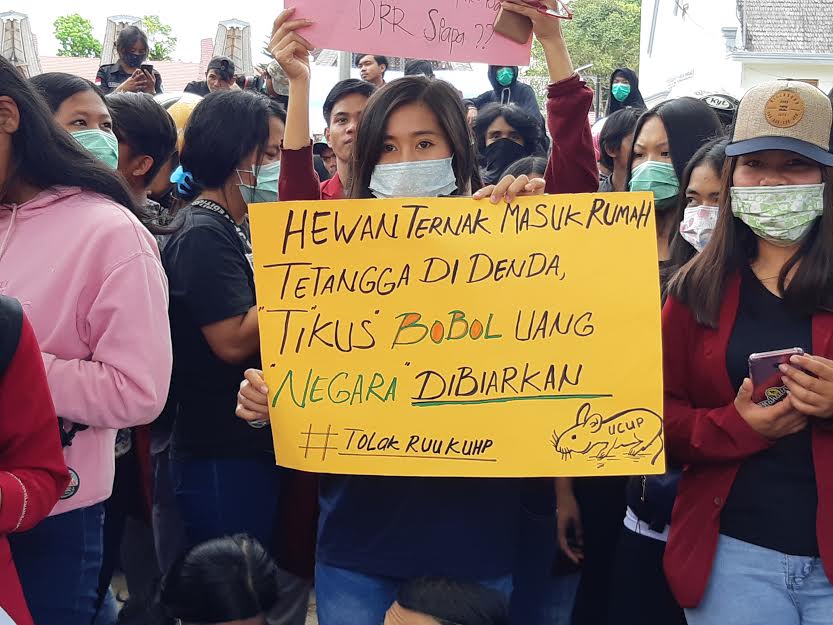 DRR SIAPA ??
HEWAN TERNAK MASUK RUMAH
TETANGGA DI DENDA,
"TIKUS" BOBOL UANG
"NEGARA" DIBIARKAN
# TOLAK RUU KUHP
UCUP